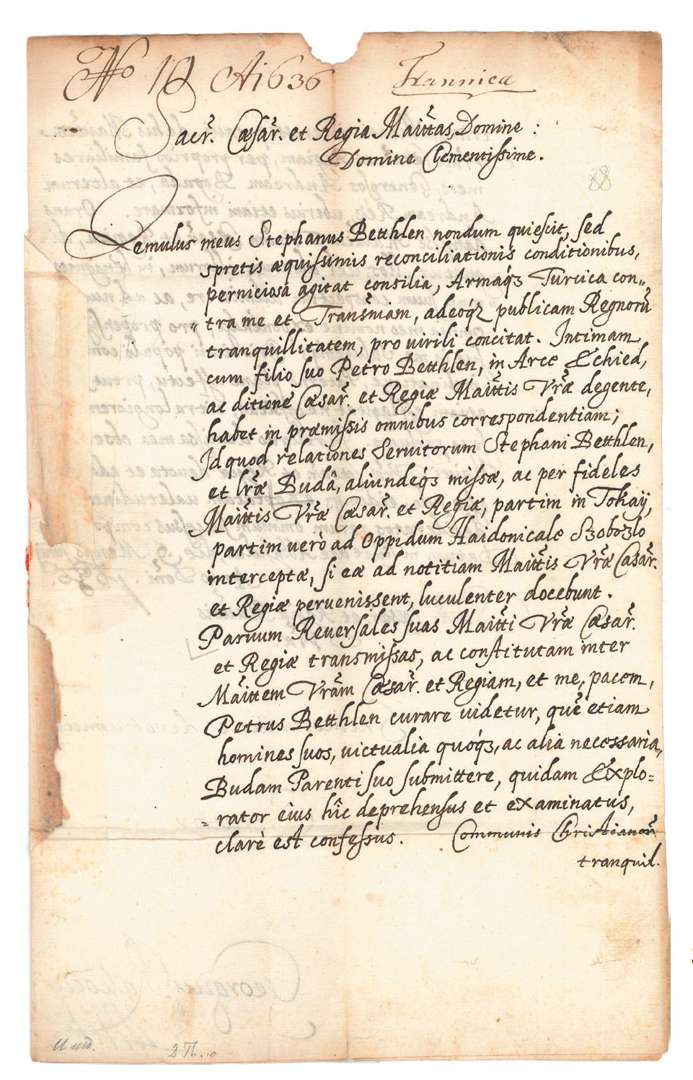 No 18 Ai636 Trannica
Sacr. Cæsar. et Regiæ Maittas, Domine :
Domine Clementissime.
88
Æmulus meus Stephanus Betthlen nondum quiescit, sed
spretis æquissimis reconciliationis conditionibus,
perniciosa agitat consilia, Armaqз Turcica con-
"tra me et Transniam, adeoqз publicam Regnorū
tranquillitatem, pro virili concitat. Intimam
cum filio suo Petro Betthlen, in Arce Echied,
ac ditione Cæsar. et Regiæ Maittis Vræ degente,
habet in præmissis omnibus correspondentiam;
Id quod relationes Servitorum Stephani Betthlen,
et lræ Budâ, aliundeqз missæ, ac per fideles
Maittis Vræ Cæsar. et Regiæ, partim in Tokaÿ,
partim verò ad Oppidum Haidonicale Szobozlo
interceptæ, si eæ ad notitiam Maittis Vræ Cæsar.
et Regiæ peruenissent, luculenter docebunt.
Paruum Reuersales suas Maitti Vræ Cæsar.
et Regiæ transmissas, ac constitutam inter
Maittem Vram Cæsar. et Regiam, et me, pacem,
Petrus Betthlen curare uidetur, quē etiam
homines suos, uictualia quoqз, ac alia necessaria,
Budam Parenti suo submittere, quidam Explo-
-rator eius hîc deprehensus et examinatus,
clarè est confessus. Communis Christianor
tranquil.